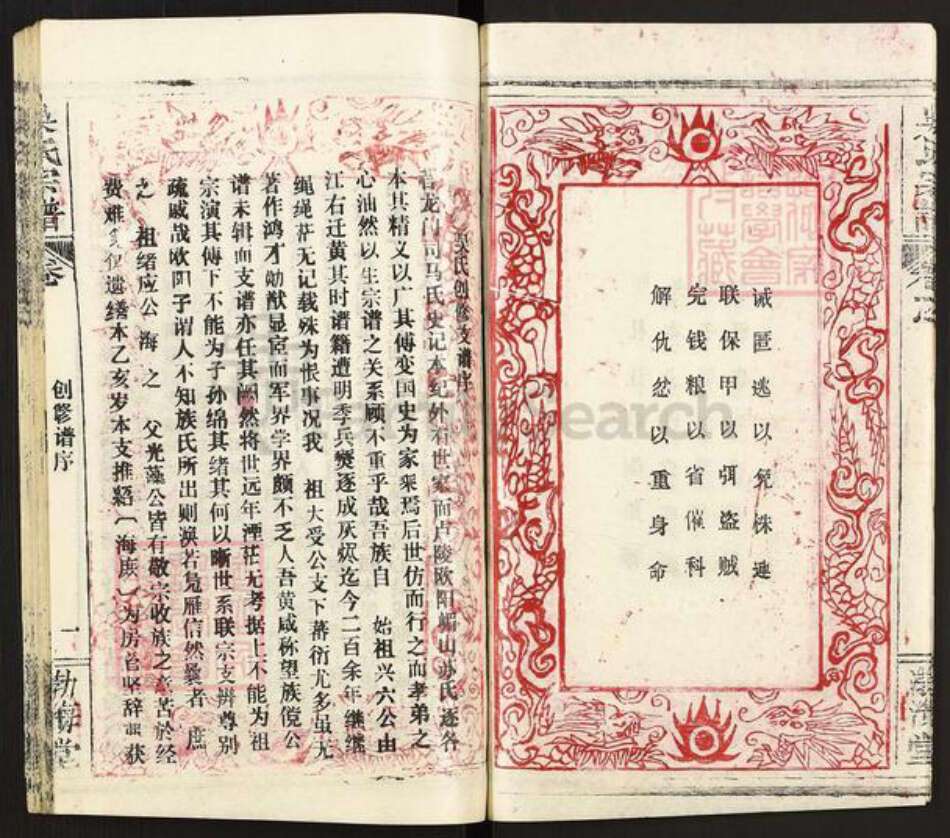 诫匿逃以免株连
联保甲以弭盗贼
完钱粮以省催科
解仇忿以重身命
吴氏宗谱
创修谱序
一
吴氏创修支谱序
昔龙门司马氏史记本纪外有世家而卢陵欧阳嵋山苏氏遂各
本其精义以广其傅变国史为家乘焉后世仿而行之而孝弟之
心油然以生宗谱之关系顾不重乎哉吾族自 始祖兴六公由
江右迁黄其时谱籍遭明季兵燹逐成灰烬迄今二百余年继继
绳绳茫无记载殊为恨事况我 祖大受公支下蕃衍尤多虽无
著作鸿才勋猷显宦而军界学界颇不乏人吾黄咸称望族傥公
谱未辑而支谱亦任其阙然将世远年湮茫无考据上不能为祖
宗演其傅下不能为子孙绵其绪其何以晰世系联宗支辨尊别
疏戚哉欧阳子谓人不知族氏所出则涣若凫雁信然曩者 庶
之 祖绪应公海之 父光藻公皆有敬宗收族之意苦於经
费难 遗绪本乙亥岁本支推 〔海庶〕为房首坚辞 获
search